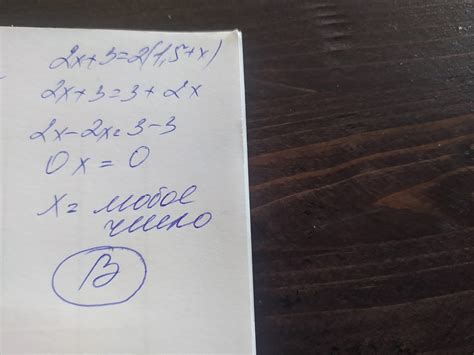 2x+3=2(1,5+x)
2x+3=3+2x
2x-2x=3-3
0x=0
x= любое
число
В